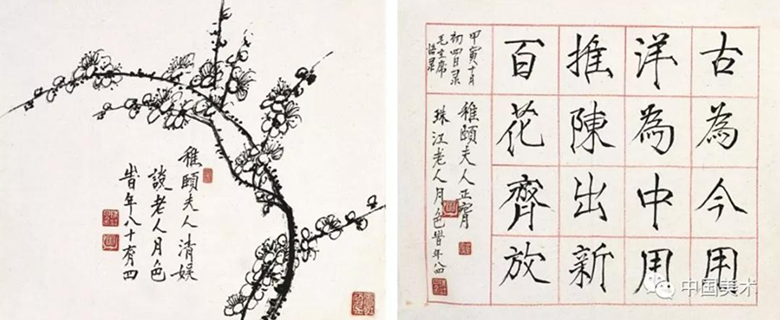 稚頤夫人清娱
談老人月色
旹年八十有四
古為今用
洋為中用
推陳出新
百花齊放
甲寅十月
初四日录
毛主席
語录
稚頤夫人正
珠江老人月色旹年八四
中国美术